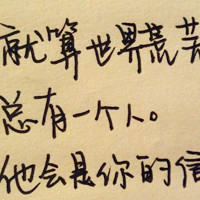 就算世界荒芜
总有一个人。
他会是你的信